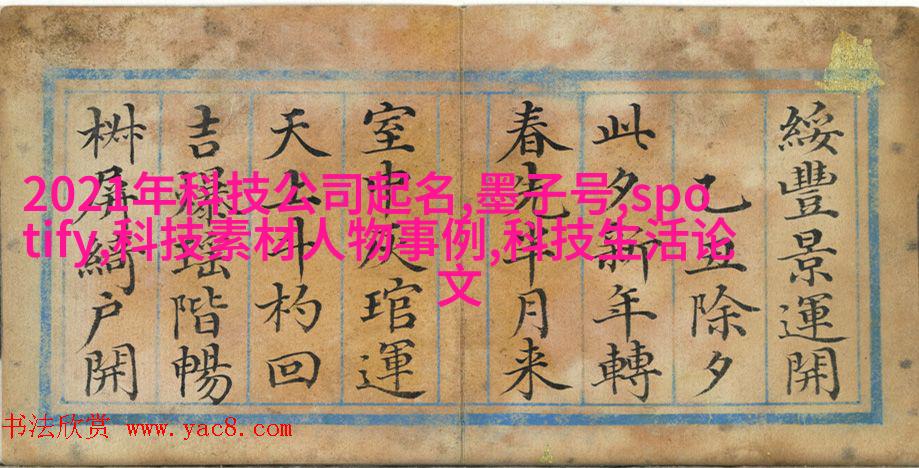 綏豐景運開
己丑除夕
此夕新年轉
春先半月来
室中灰琯運
天上斗杓回
吉爆瑶階暢
屏綺戶開
2021年科技公司起名,墨子号,spo
tify,科技素材人物事例,科技生活论
文
书法欣赏 www.yac8.com